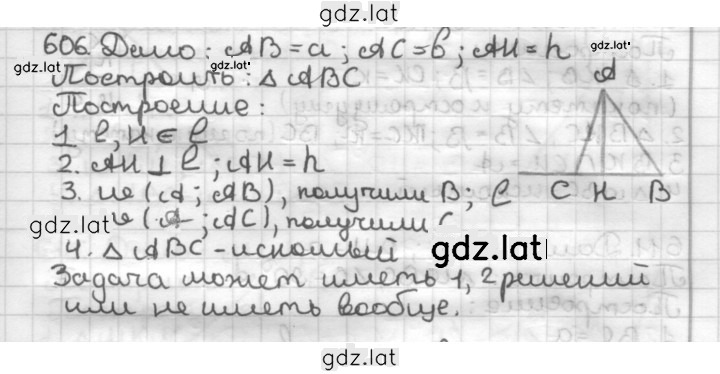 gdz.lat
606. Дано: AB = a; AC = b; AH = h
gdz.lat
gdz.lat
Построить: △ABC
Построение:
1. ℓ, H ∈ ℓ
2. AH ⊥ ℓ; AH = h
3. (A; AB), получили B;
(A; AC), получили C
gdz.lat
4. △ABC - искомый
gdz.lat
Задача может иметь 1, 2 решений
или не иметь вообще.
A
ℓ C H B
gdz.lat